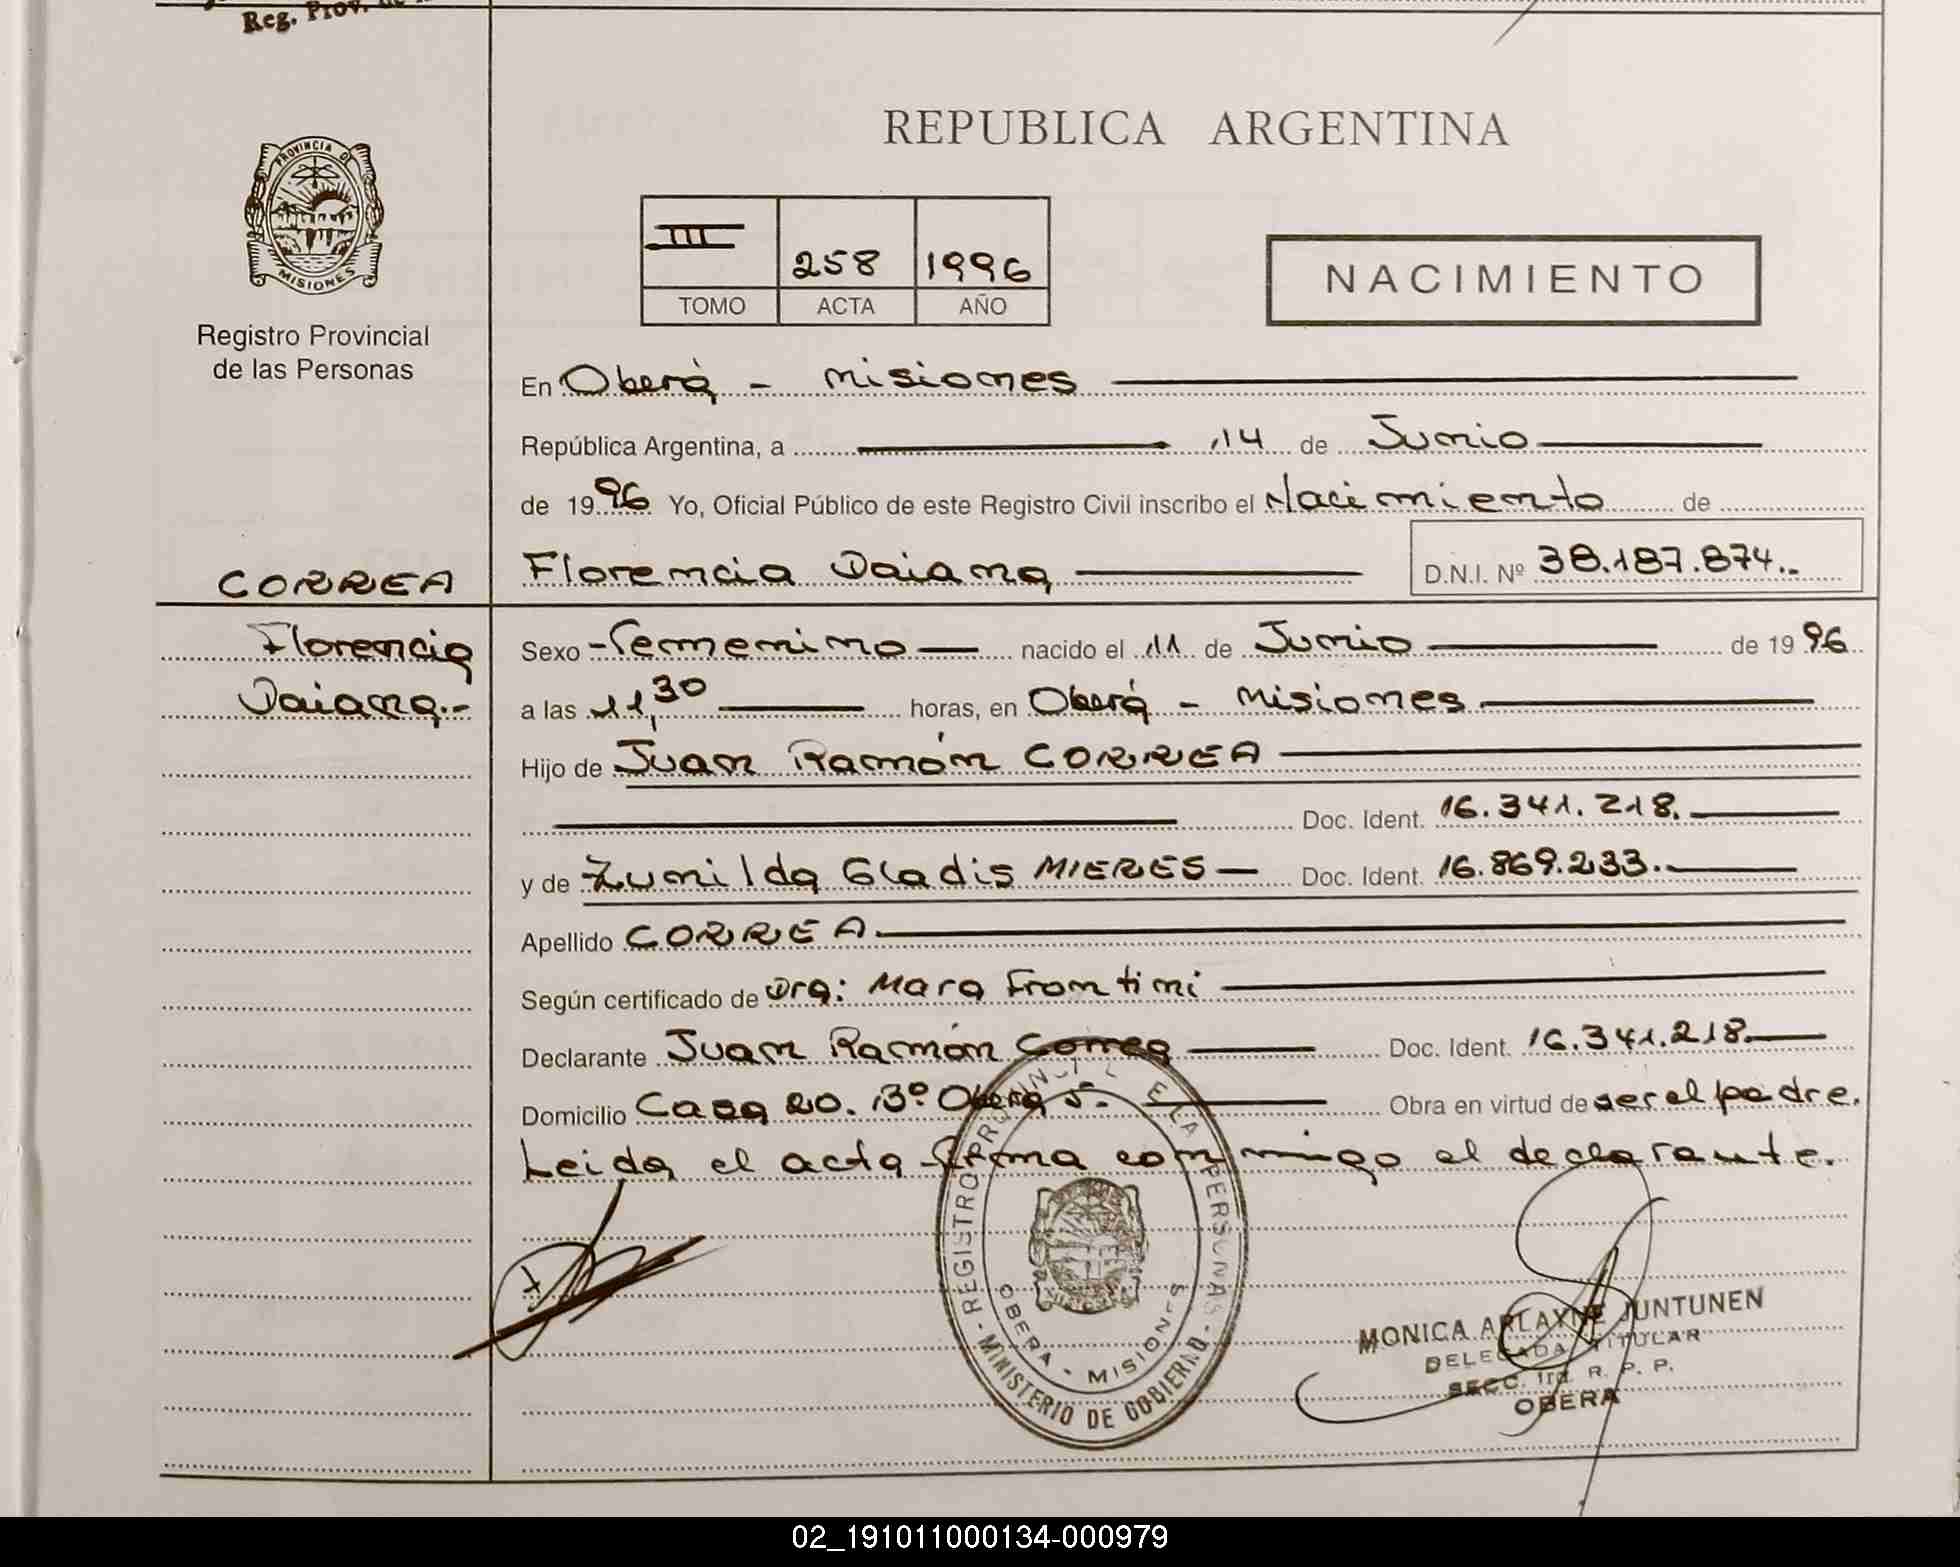 Reg. Prov. de
REPUBLICA ARGENTINA
PROVINCIA DE
MISIONES
Registro Provincial
de las Personas
III 258 1996
TOMO ACTA AÑO
NACIMIENTO
En Oberá - Misiones
República Argentina, a 14 de Junio
de 1996 Yo, Oficial Público de este Registro Civil inscribo el Nacimiento de
CORREA Florencia Daiana D.N.I. Nº 38.187.874.-
Florencia Sexo Femenino nacido el 11 de Junio de 1996
Daiana.- a las 11,30 horas, en Oberá - Misiones
Hijo de Juan Ramón CORREA
Doc. Ident. 16.341.218.
y de Zunilda Gladis MIERES Doc. Ident. 16.869.233.
Apellido CORREA
Según certificado de Dra: Mara Frontini
Declarante Juan Ramón Correa Doc. Ident. 16.341.218
Domicilio Casa 20. 13º Oberá 5. Obra en virtud de ser el padre.
Leida el acta firma conmigo el declarante.
REGISTRO PROVINCIAL DE LAS PERSONAS
OBERA - MISIONES
MINISTERIO DE GOBIERNO
MONICA ARLAYNE JUNTUNEN
DELEGADA TITULAR
SECC. 1ra. R. P. P.
OBERA
02_191011000134-000979